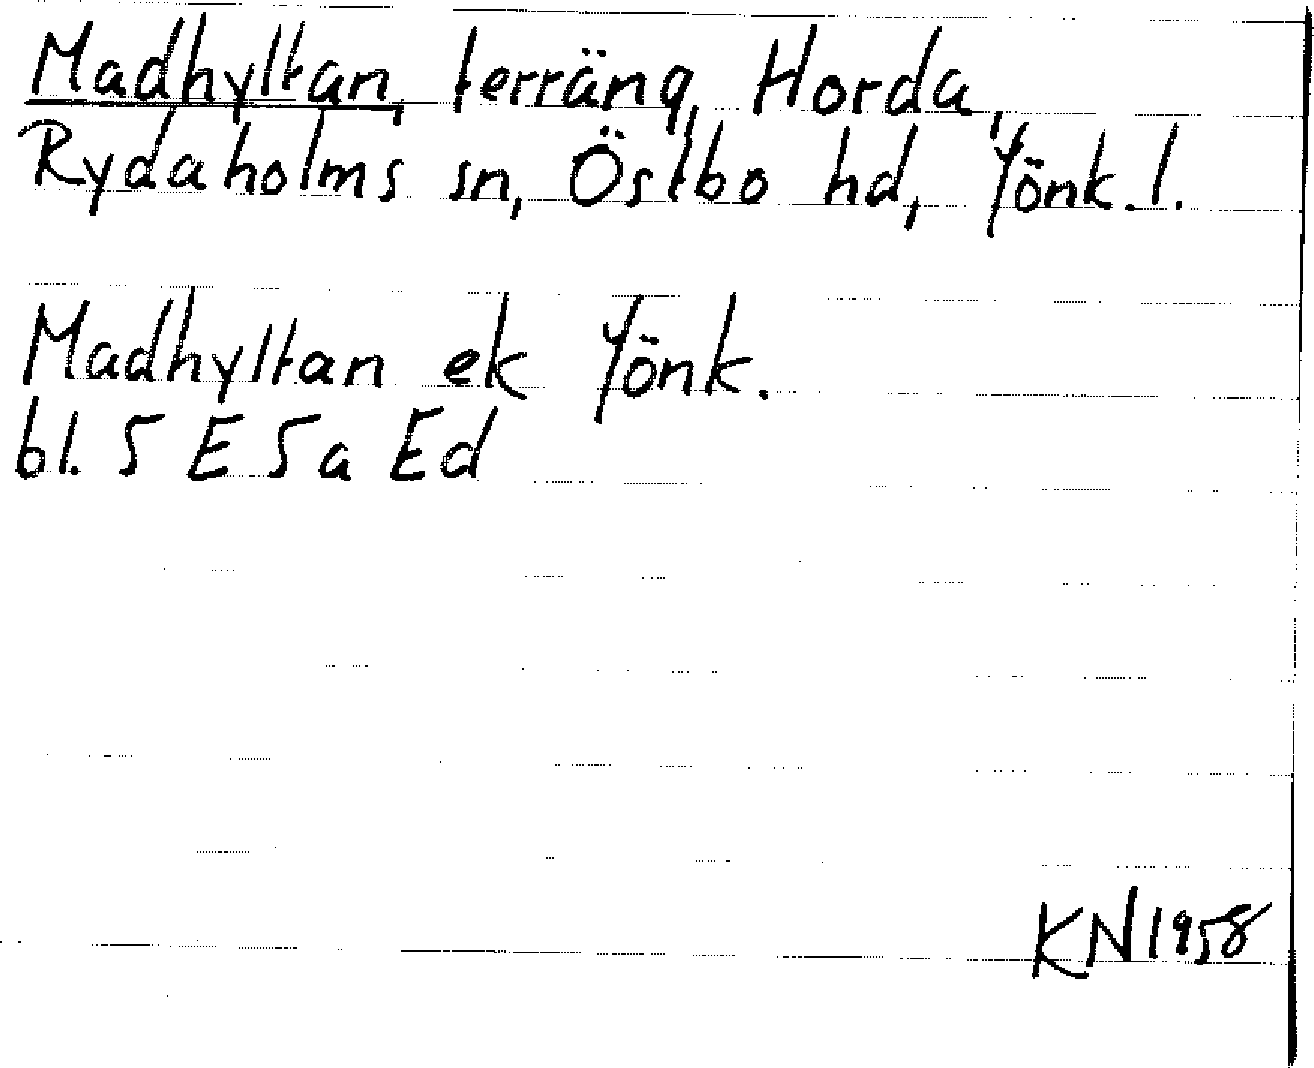 Madhyltan, terräng, Horda,
Rydaholms sn, Östbo hd, Jönk. l.
Madhyltan ek Jönk.
bl. 5 E 5 a Ed
KN 1958